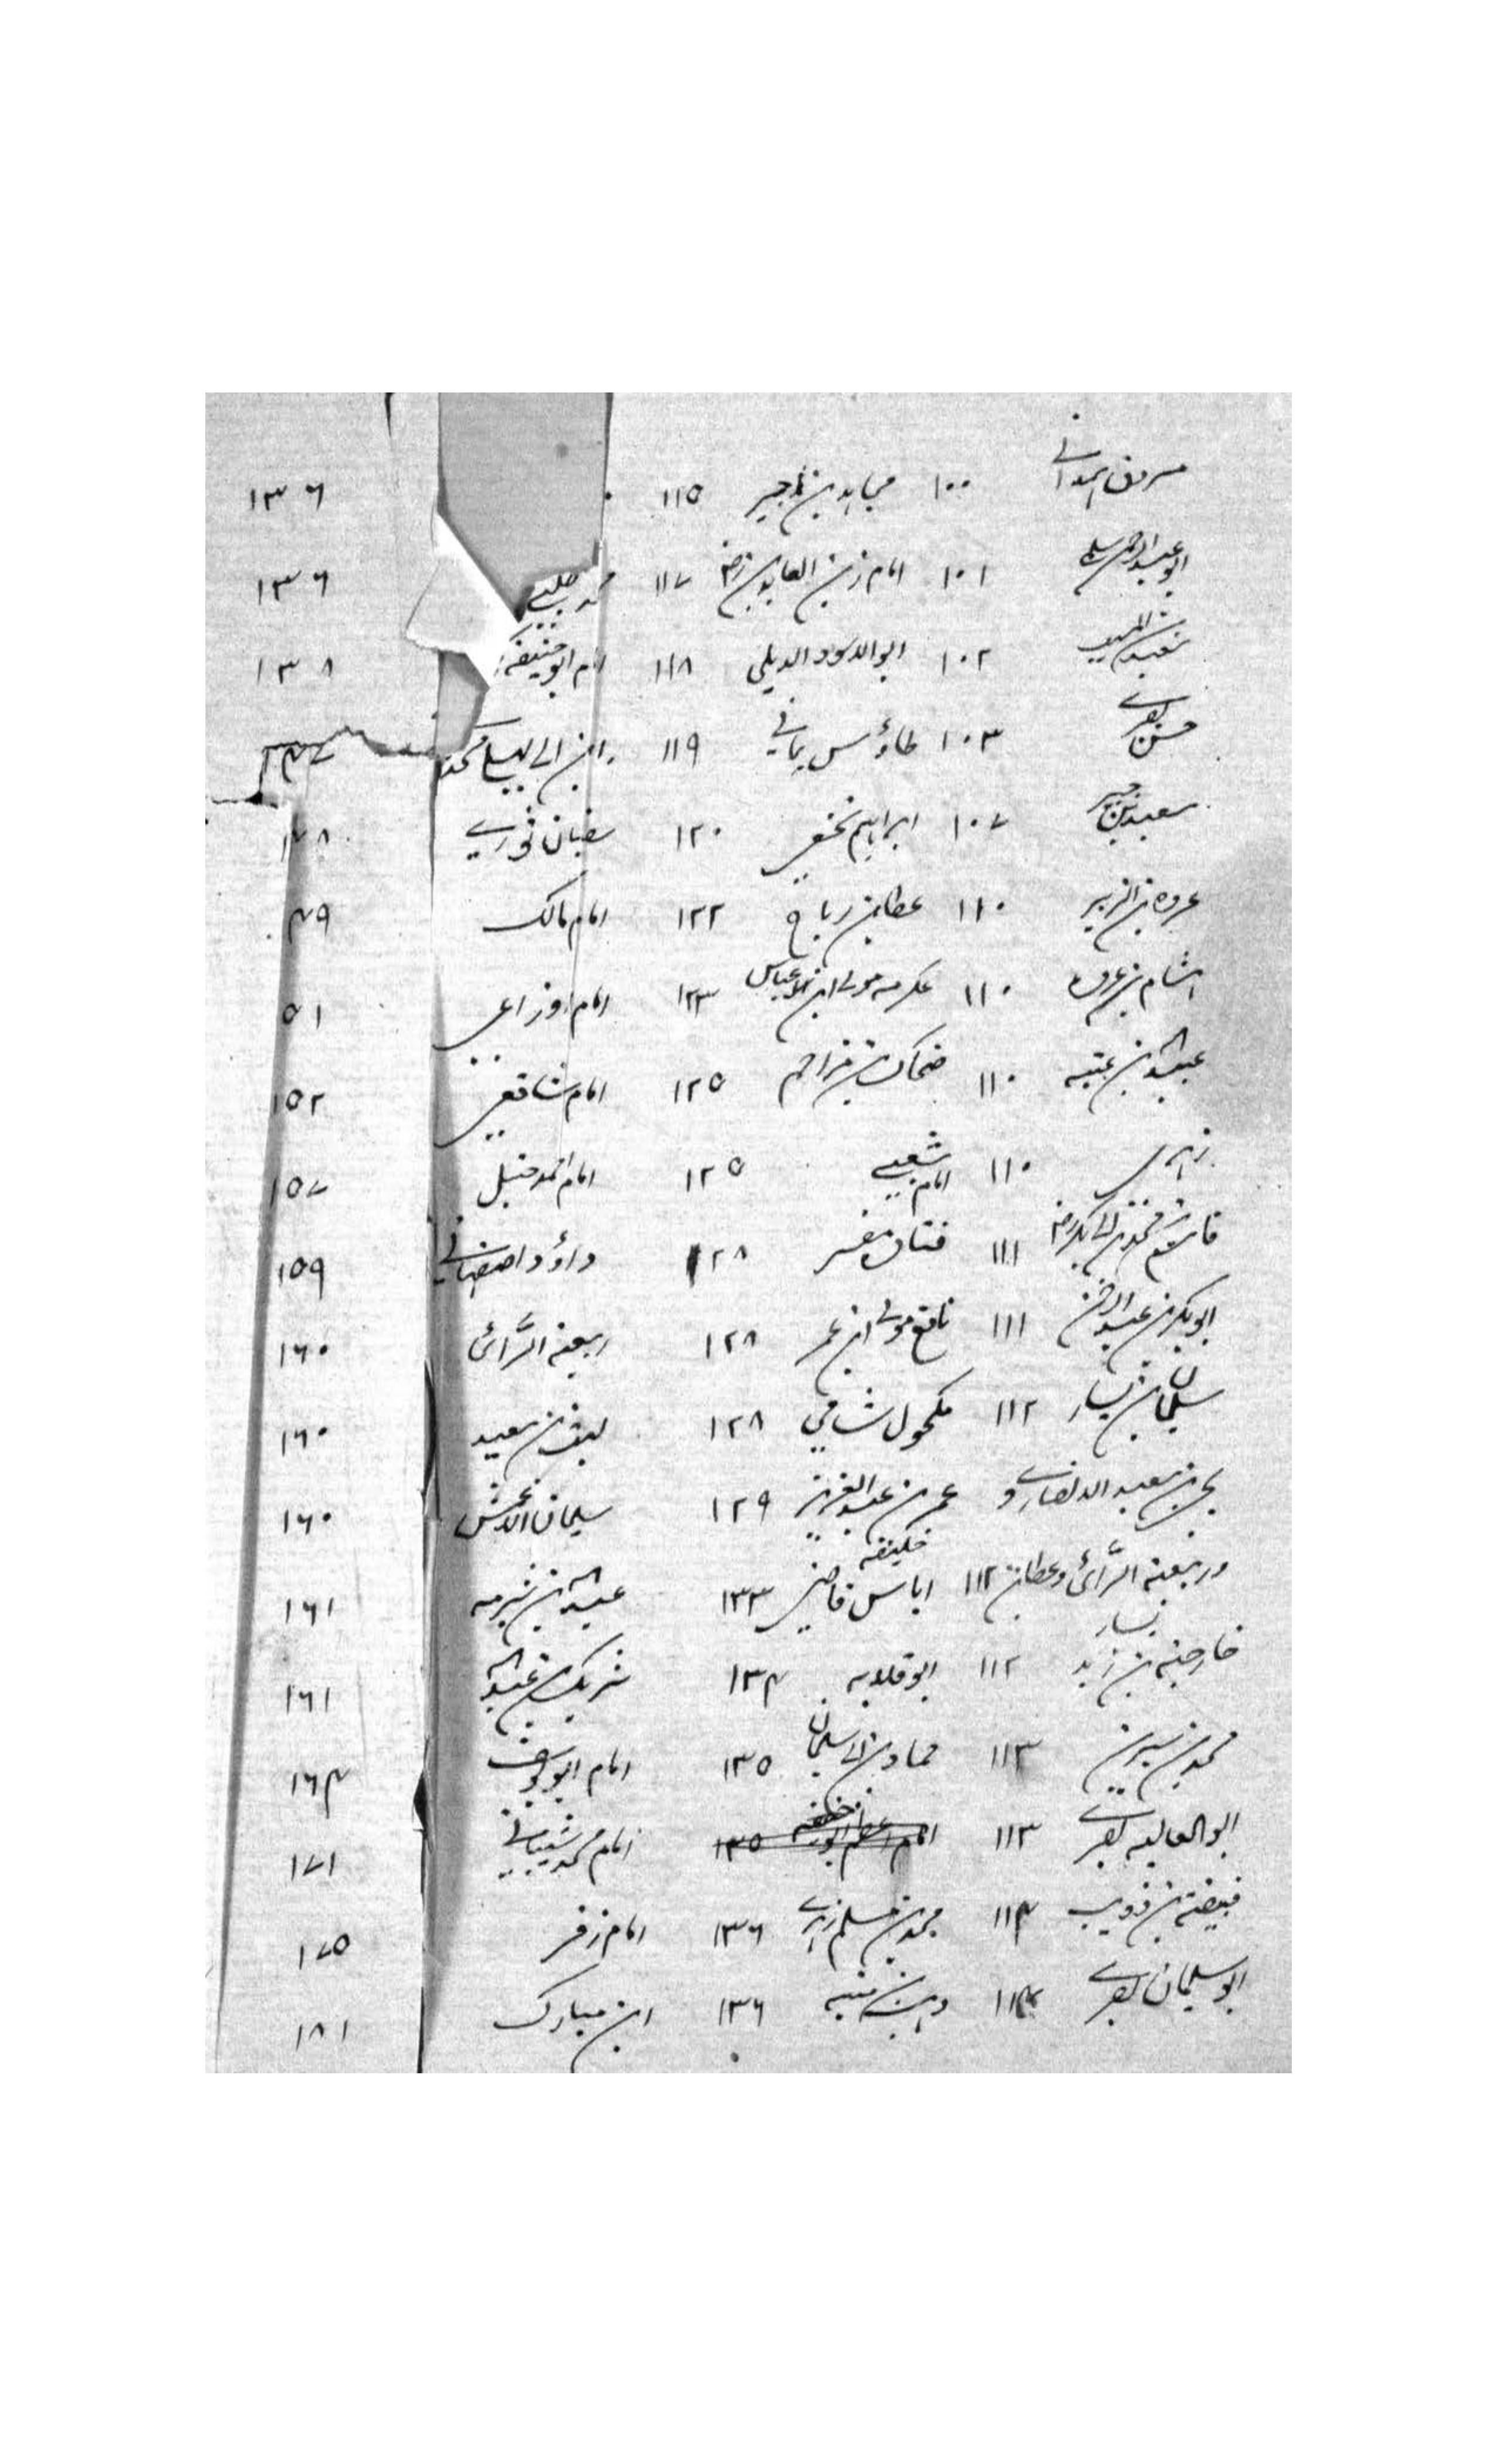 مسروق الہمدانی ۱۰۰ مجاہد بن جبیر ۱۱۵ ۱۳۶
ابو عبدالرحمن سلمی ۱۰۱ امام زین العابدین رض ۱۱۷ ۱۳۶
سعید بن المسیب ۱۰۲ ابوالاسود الدیلی ۱۱۸ امام ابو حنیفہ ۱۳۸
حسن بصری ۱۰۳ طاؤس یمانی ۱۱۹ ابن ابی لیلیٰ محمد
سعید بن جبیر ۱۰۷ ابراہیم نخعی ۱۲۰ سفیان ثوری
عروہ بن الزبیر ۱۱۰ عطا بن رباح ۱۲۲ امام مالک ۴۹
ہشام بن عروہ ۱۱۰ عکرمہ مولی ابن عباس ۱۲۳ امام اوزاعی ۵۱
عبیداللہ بن عتبہ ۱۱۰ ضحاک بن مزاحم ۱۲۵ امام شافعی ۱۵۲
زہری ۱۱۰ امام شعبی ۱۲۵ امام احمد حنبل ۱۵۷
قاسم بن محمد بن ابی بکر رض ۱۱۱ قتادہ مفسر ۱۲۸ داؤد اصفہانی ۱۵۹
ابوبکر بن عبدالرحمن ۱۱۱ نافع مولی ابن عمر ۱۲۸ ربیعۃ الرَّائی ۱۶۰
سلیمان بن یسار ۱۱۲ مکحول شامی ۱۲۸ لیث بن سعید ۱۶۰
یحییٰ بن سعید الانصاری و عمر بن عبدالعزیز خلیفہ ۱۲۹ سلیمان الاعمش ۱۶۰
و ربیعۃ الرَّائی و عطا بن یسار ۱۱۲ ایاس قاضی ۱۳۳ عبداللہ بن شبرمہ ۱۶۱
خارجہ بن زید ۱۱۲ ابو قلابہ ۱۳۴ شریک بن عبداللہ ۱۶۱
محمد بن سیرین ۱۱۳ حماد بن ابی سلیمان ۱۳۵ امام ابو یوسف ۱۶۴
ابوالعالیہ بصری ۱۱۳ امام اعظم ابو حنیفہ ۱۳۵ امام محمد شیبانی ۱۷۱
قبیصہ بن ذویب ۱۱۴ محمد بن مسلم زہری ۱۳۶ امام زفر ۱۷۵
ابو سلیمان بصری ۱۱۴ وہب بن منبہ ۱۳۶ ابن مبارک ۱۸۱